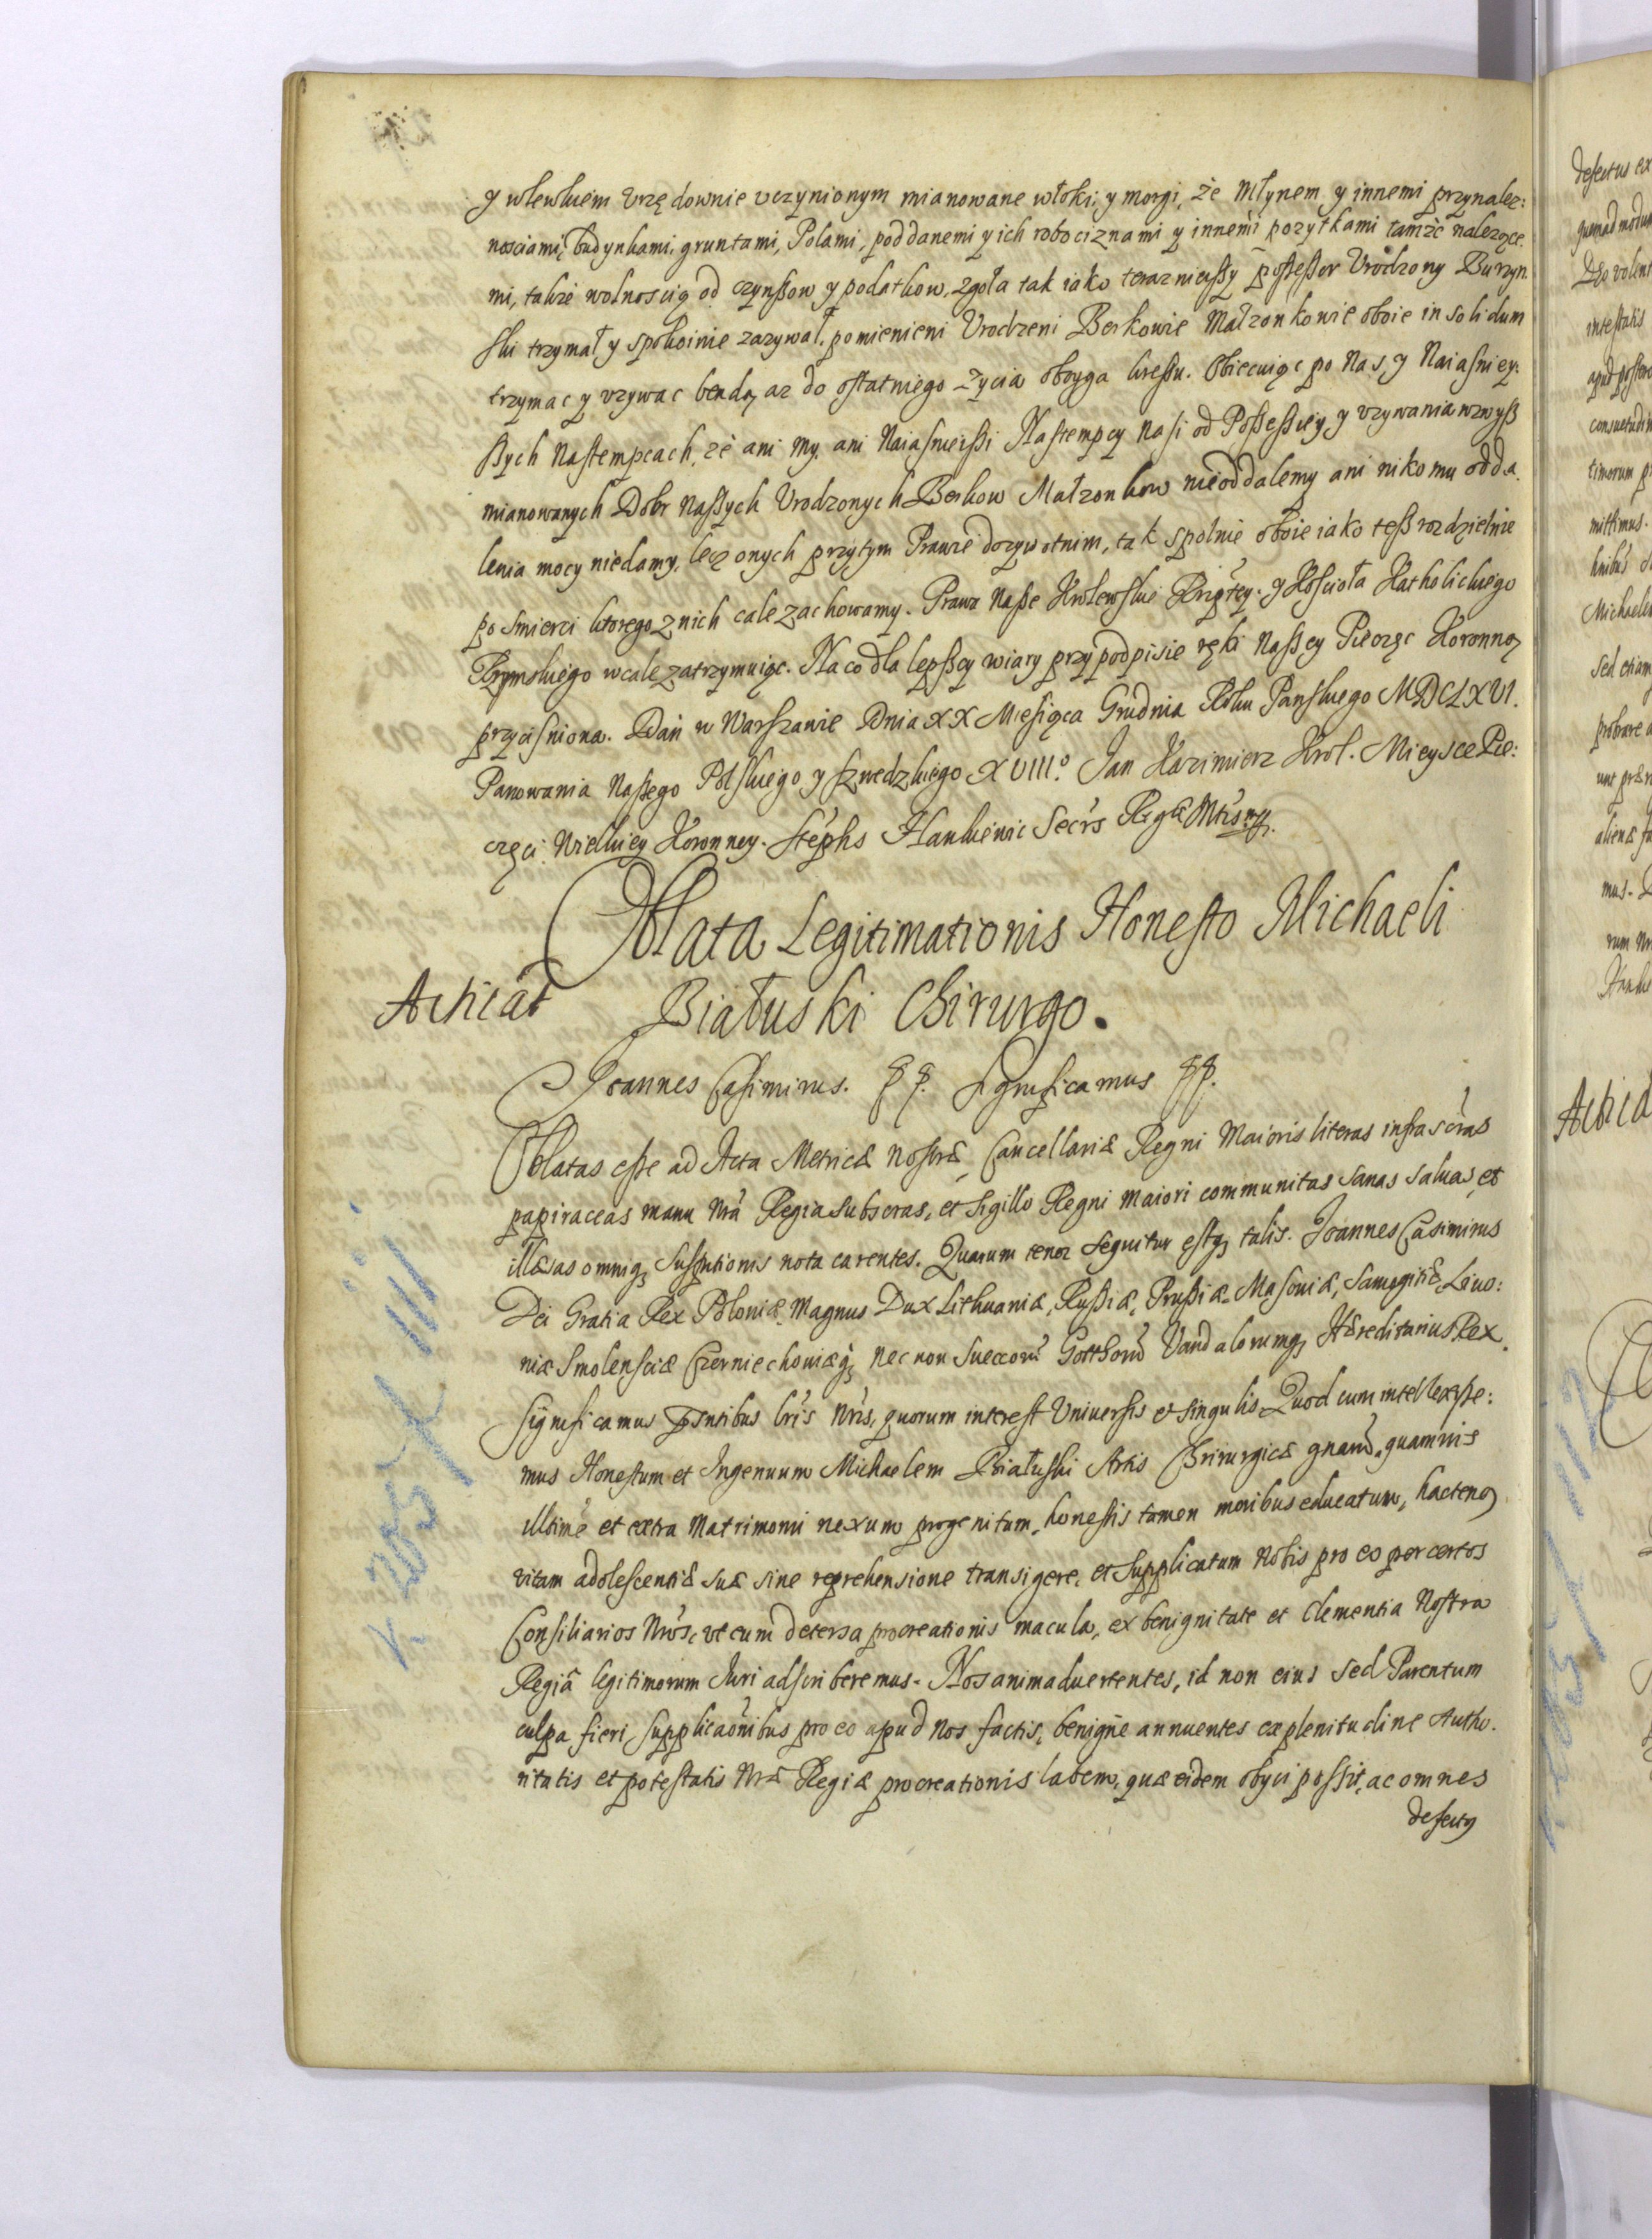 y wlewkiem Vrzędownie vczynionym mianowane włoki, y morgi, że Młynem y innemi przynalez:
nosciami, budynkami, gruntami, Polami, poddanemi y ich robociznami y innemi pozytkami tamże nalezące
mi, także wolnoscią od czynßow y podatkow, zgoła tak iako teraznieyßy poßeßor Vrodzony Burzyn
ski trzymał y spokoinie zazywał, pomienieni Vrodzeni Berkowie Małzonkowie oboie in solidum
trzymac y vzywac bendą az do ostatniego Zycia oboyga kreßu. Obiecuiąc po Nas, y Naiasniey:
ßych Nastempcach, że ani My, ani Naiasnieißi Nastempcy Nasi od Poßeßiey, y vzywania wzwyß
mianowanych Dobr Naßych Vrodzonych Berkow Małzonkow nieoddalemy ani nikomu odda
lenia mocy niedamy, lecz onych przytym Prawie dozywotnim, tak spolnie oboie iako teß rozdzielnie
po smierci ktorego z nich cale zachowamy. Prawa Naße Krolewskie Rzptey. y Kościoła Katholickiego
Rzymskiego wcale zatrzymuiąc. Na co dla lepßey wiary przy podpisie ręki Naßey Pieczęc Koronną
przycisniona. Dan w Warszawie Dnia XX Miesiąca Grudnia Roku Panskiego MDCLXVI.
Panowania Naßego Polskiego y szwedzkiego XVIII.o Jan Kazimierz Krol. Mieysce Pie:
częci Wielkiey Koronney. Stephs Hankiewic Secrs Regæ Mtis mp.
Oblata Legitimationis Honesto Michaeli
Białuski Chirurgo.
Acticat
Joannes Casimirus. pp. Significamus pp.
Oblatas esse ad Acta Metricæ Nostræ, Cancellariæ Regni Maioris literas infrascras
papiraceas manu Nra Regia subscras, et sigillo Regni maiori communitas sanas saluas, et
illæsas omniq3 suspitionis nota carentes. Quarum tenor sequitur estq3 talis. Joannes Casimirus
Dei Gratia Rex Poloniæ, Magnus Dux Lithuaniæ, Rußiæ, Prußiæ, Masouiæ, Samogitiæ, Liuo:
niæ Smolensciæ Czerniechouiæq3 nec non Suecoru Gotthoru Vandalorumq3 Hæreditarius Rex.
Significamus Pnsntibus lris Nris, quorum interest Uniuersis et singulis Quod cum intellexiße:
mus Honestum et Ingenuum Michaelem Białuski Artis Chirurgicæ gnaru, quamuis
illtime et extra Matrimonii nexum progenitum, honestis tamen moribus educatum, hacteno
vitam adolescentiæ suæ sine reprehensione transigere, et supplicatum Nobis pro eo per certos
Consiliarios Nros, vt eum detersa procreationis macula, ex benignitate et clementia Nostra
Regia legitimorum Juri adscriberemus. Nos animaduertentes, id non eius sed Parentum
culpa fieri supplicaonibus pro eo apud Nos factis, benigne annuentes ex plenitudine Autho.
ritatis et potestatis Nræ Regiæ procreationis labem, quæ eidem obyci possit, ac omnes
defectus